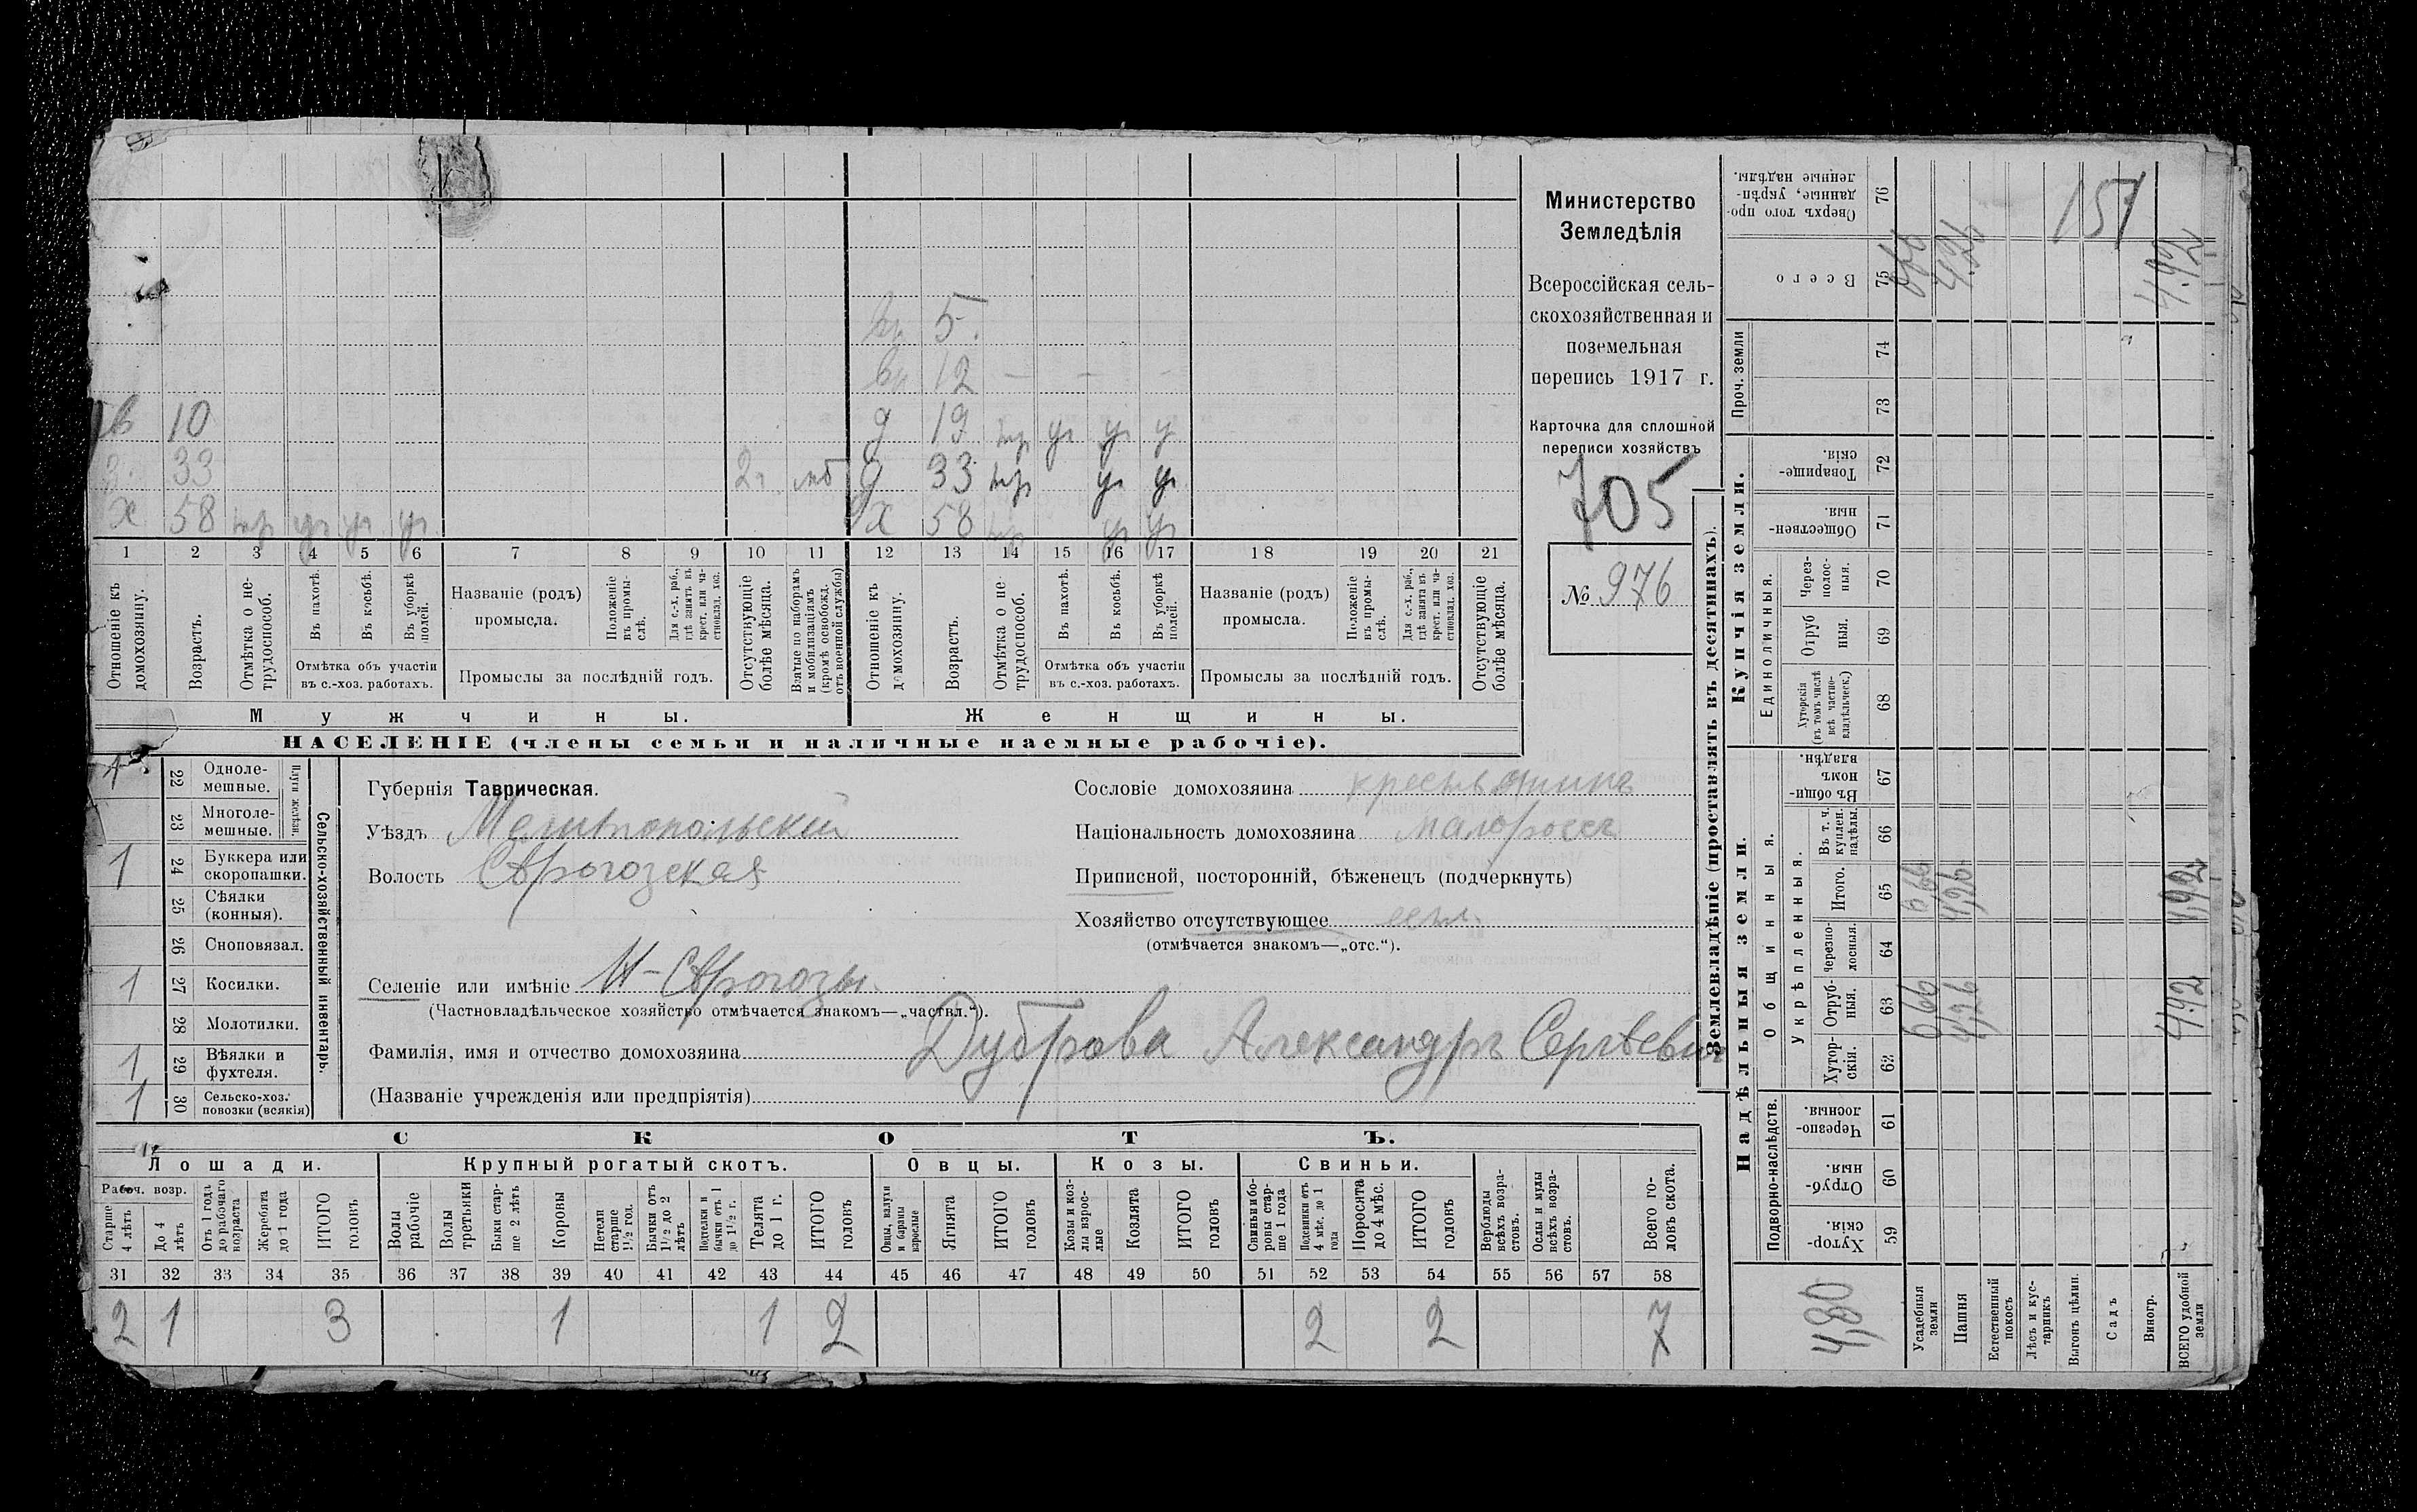 5
12 — — —
в 10 д 19
33 д 33
х 58 х 58
1 2 3 4 5 6 7 8 9 10 11 12 13 14 15 16 17 18 19 20 21
Отношеніе къ домохозяину.
Возрастъ.
Отмѣтка о нетрудоспособ.
Въ пахотѣ.
Въ косьбѣ.
Въ уборкѣ полей.
Отмѣтка объ участіи
въ с.-хоз. работахъ.
Названіе (родъ)
промысла.
Положеніе въ промыслѣ.
Для с.-х. раб., гдѣ занятъ въ крест. или частновлад. хоз.
Промыслы за послѣдній годъ.
Отсутствующіе болѣе мѣсяца.
Взятые по наборамъ и мобилизаціямъ (кромѣ освобожд. отъ военной службы)
Отношеніе къ домохозяину.
Возрастъ.
Отмѣтка о нетрудоспособ.
Въ пахотѣ.
Въ косьбѣ.
Въ уборкѣ полей.
Отмѣтка объ участіи
въ с.-хоз. работахъ.
Названіе (родъ)
промысла.
Положеніе въ промыслѣ.
Для с.-х. раб., гдѣ занята въ крест. или частновлад. хоз.
Промыслы за послѣдній годъ.
Отсутствующіе болѣе мѣсяца.
Мужчины.
Женщины.
НАСЕЛЕНІЕ (члены семьи и наличные наемные рабочіе).
Министерство
Земледѣлія
Всероссійская сель-
скохозяйственная и
поземельная
перепись 1917 г.
Карточка для сплошной
переписи хозяйствъ
705
№ 976
1 22 Однолемешные.
23 Многолемешные.
Плуги желѣзн.
1 24 Буккера или скоропашки.
25 Сѣялки (конныя).
26 Сноповязал.
1 27 Косилки.
28 Молотилки.
1 29 Вѣялки и фухтеля.
1 30 Сельско-хоз. повозки (всякія)
Сельско-хозяйственный инвентарь.
Губернія Таврическая.
Уѣздъ Мелитопольскій
Волость Сѣрогозская
Селеніе или имѣніе Н-Сѣрогозы.
(Частновладѣльческое хозяйство отмѣчается знакомъ—„частвл.“).
Фамилія, имя и отчество домохозяина Дуброва Александръ Сергѣевич
(Названіе учрежденія или предпріятія)
Сословіе домохозяина крестьянинъ
Національность домохозяина малороссъ
Приписной, посторонній, бѣженецъ (подчеркнуть)
Хозяйство отсутствующее
(отмѣчается знакомъ—„отс.“).
СКОТЪ.
Лошади. Крупный рогатый скотъ. Овцы. Козы. Свиньи.
Рабоч. возр.
Старше 4 лѣтъ
До 4 лѣтъ
Отъ 1 года до рабочаго возраста
Жеребята до 1 года
ИТОГО головъ
Волы рабочіе
Волы третьяки
Быки старше 2 лѣтъ
Коровы
Нетели старше 1 1/2 год.
Бычки отъ 1 1/2 до 2 лѣтъ
Подтелки и бычки отъ 1 до 1 1/2 г.
Телята до 1 г.
ИТОГО головъ
Овцы, валухи и бараны взрослые
Ягнята
ИТОГО головъ
Козы и козлы взрослые
Козлята
ИТОГО головъ
Свиньи и боровы старше 1 года
Подсвинки отъ 4 мѣс. до 1 года
Поросята до 4 мѣс.
ИТОГО головъ
Верблюды всѣхъ возрастовъ.
Ослы и мулы всѣхъ возрастовъ.
Всего головъ скота.
31 32 33 34 35 36 37 38 39 40 41 42 43 44 45 46 47 48 49 50 51 52 53 54 55 56 57 58
2 1 3 1 1 2 2 2 7
Землевладѣніе (проставлять въ десятинахъ).
151
Сверхъ того проданные, укрѣпленные надѣлы. 76
Всего 75 4.26 4.92
Проч. земли
74
73
Купчія земли.
Товарищескія. 72
Общественныя. 71
Единоличныя.
Черезполосныя. 70
Отрубныя. 69
Хуторскія (въ томъ числѣ всѣ частновладѣльческ.) 68
Надѣльныя земли.
Общинныя.
Въ общинномъ владѣн. 67
Укрѣпленныя.
Въ т. ч. куплен. надѣлы. 66
Итого. 65 0,66 4,26 4,92
Черезполосныя. 64
Отрубныя. 63 0,66 4,26 4,92
Хуторскія. 62
Подворно-наслѣдств.
Черезполосныя. 61
Отрубныя. 60
Хуторскія. 59
4,80
Усадебныя земли
Пашня
Естественный покосъ
Лѣсъ и кустарникъ
Выгонъ цѣлин.
Садъ
Виногр.
ВСЕГО удобной земли